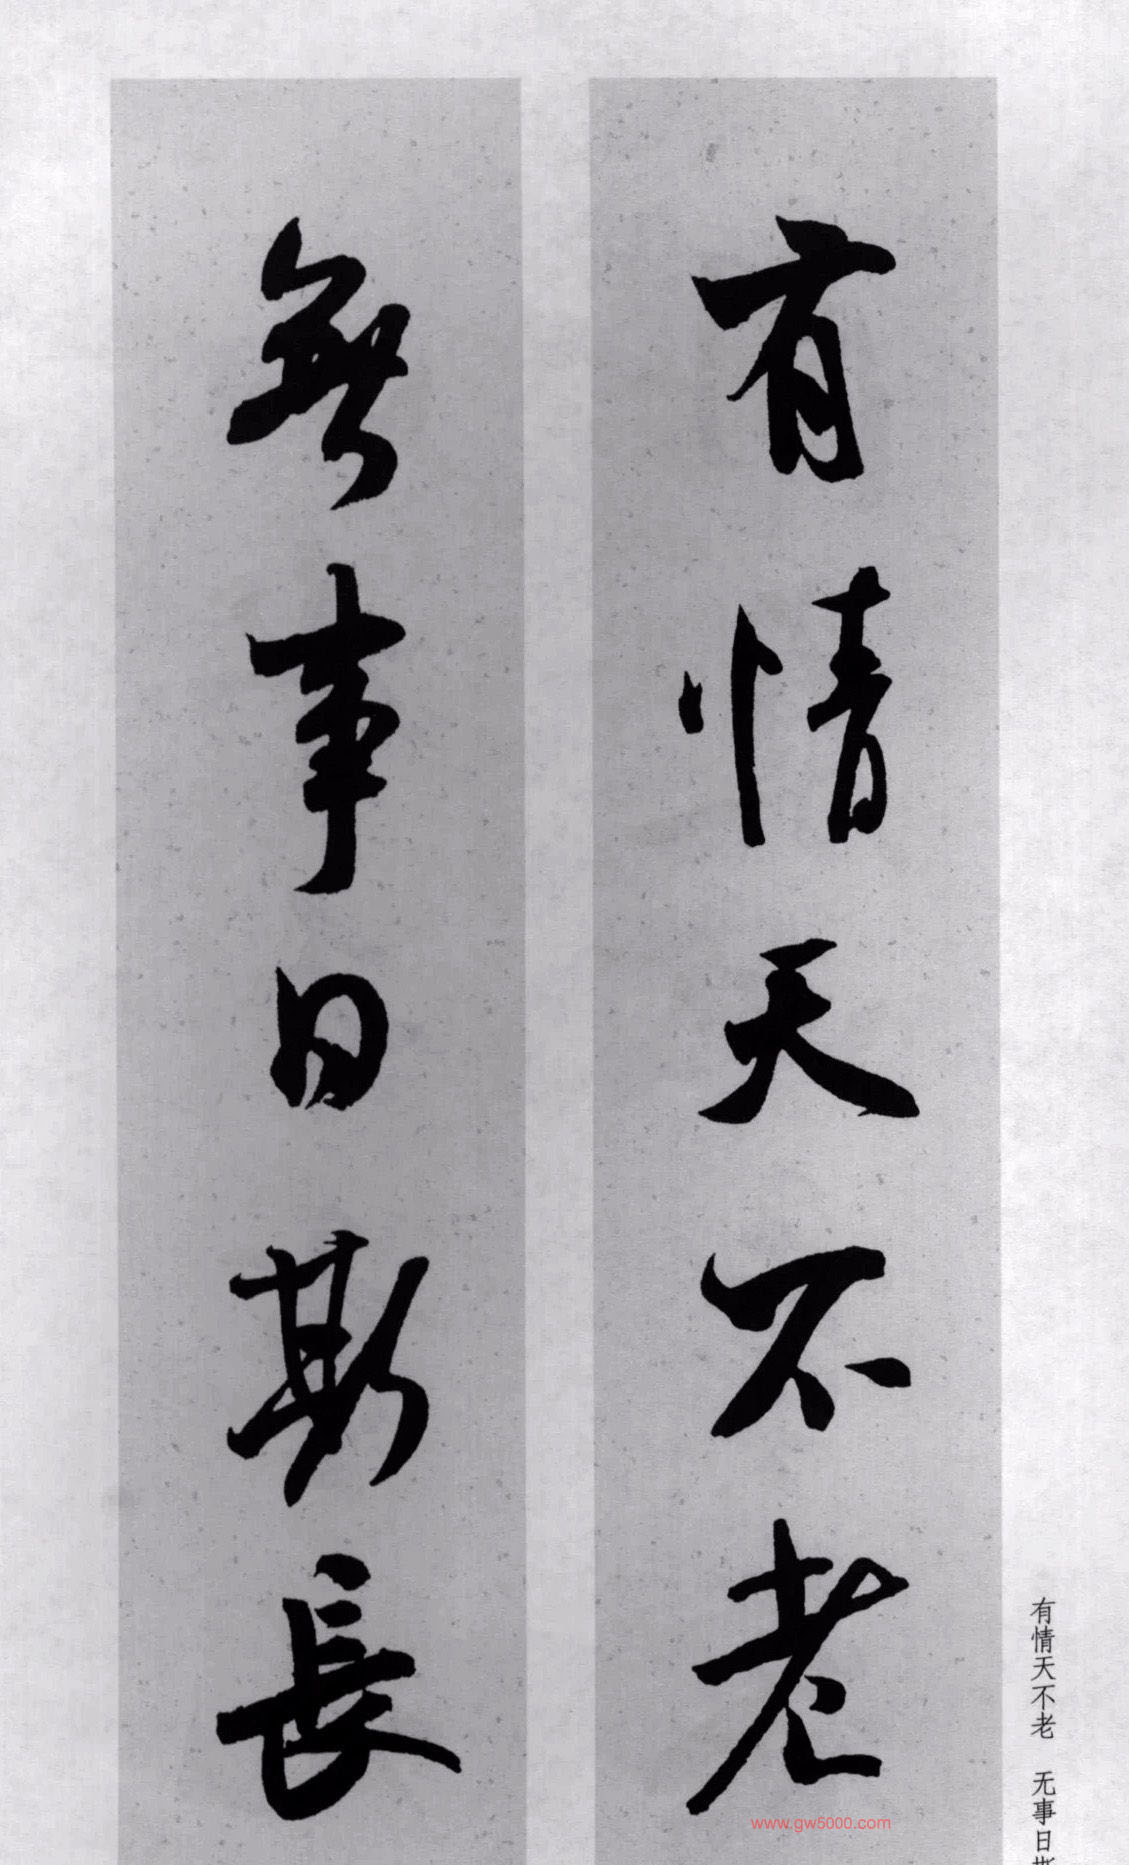 有情天不老
無事日斯長
有情天不老 无事日斯
www.gw5000.com